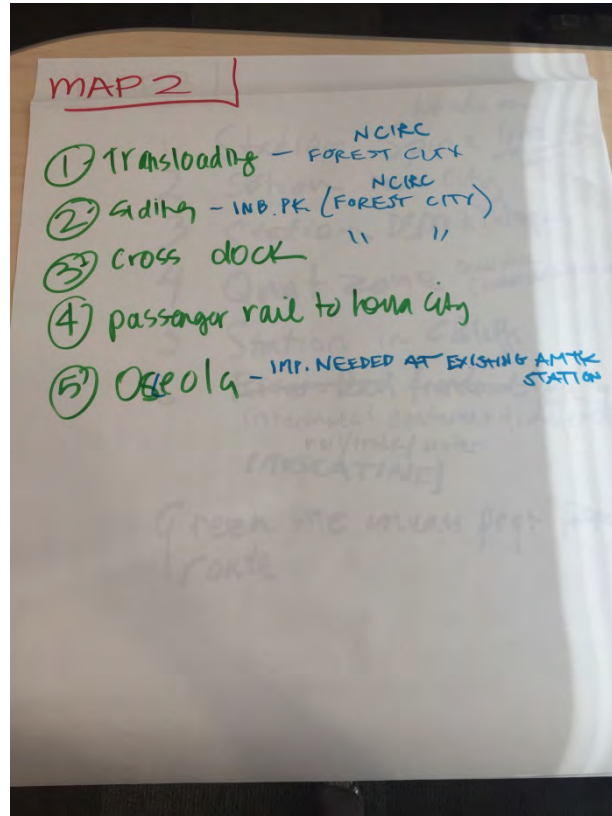 MAP 2
① Transloading - NCIRC FOREST CITY
② siding - IND. PK (NCIRC FOREST CITY)
③ cross dock " "
④ passenger rail to Iowa City
⑤ Osceola - IMP. NEEDED AT EXISTING AMTK STATION
[MUSCATINE]
Green line means psgr
route